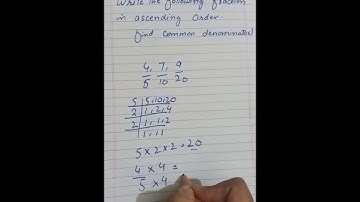 Write the following fraction
in ascending order.
find common denominator)
4, 7, 9
5 10 20
5 | 5, 10, 20
2 | 1, 2, 4
2 | 1, 1, 2
1, 1
5 × 2 × 2 = 20
4 × 4 =
5 × 4